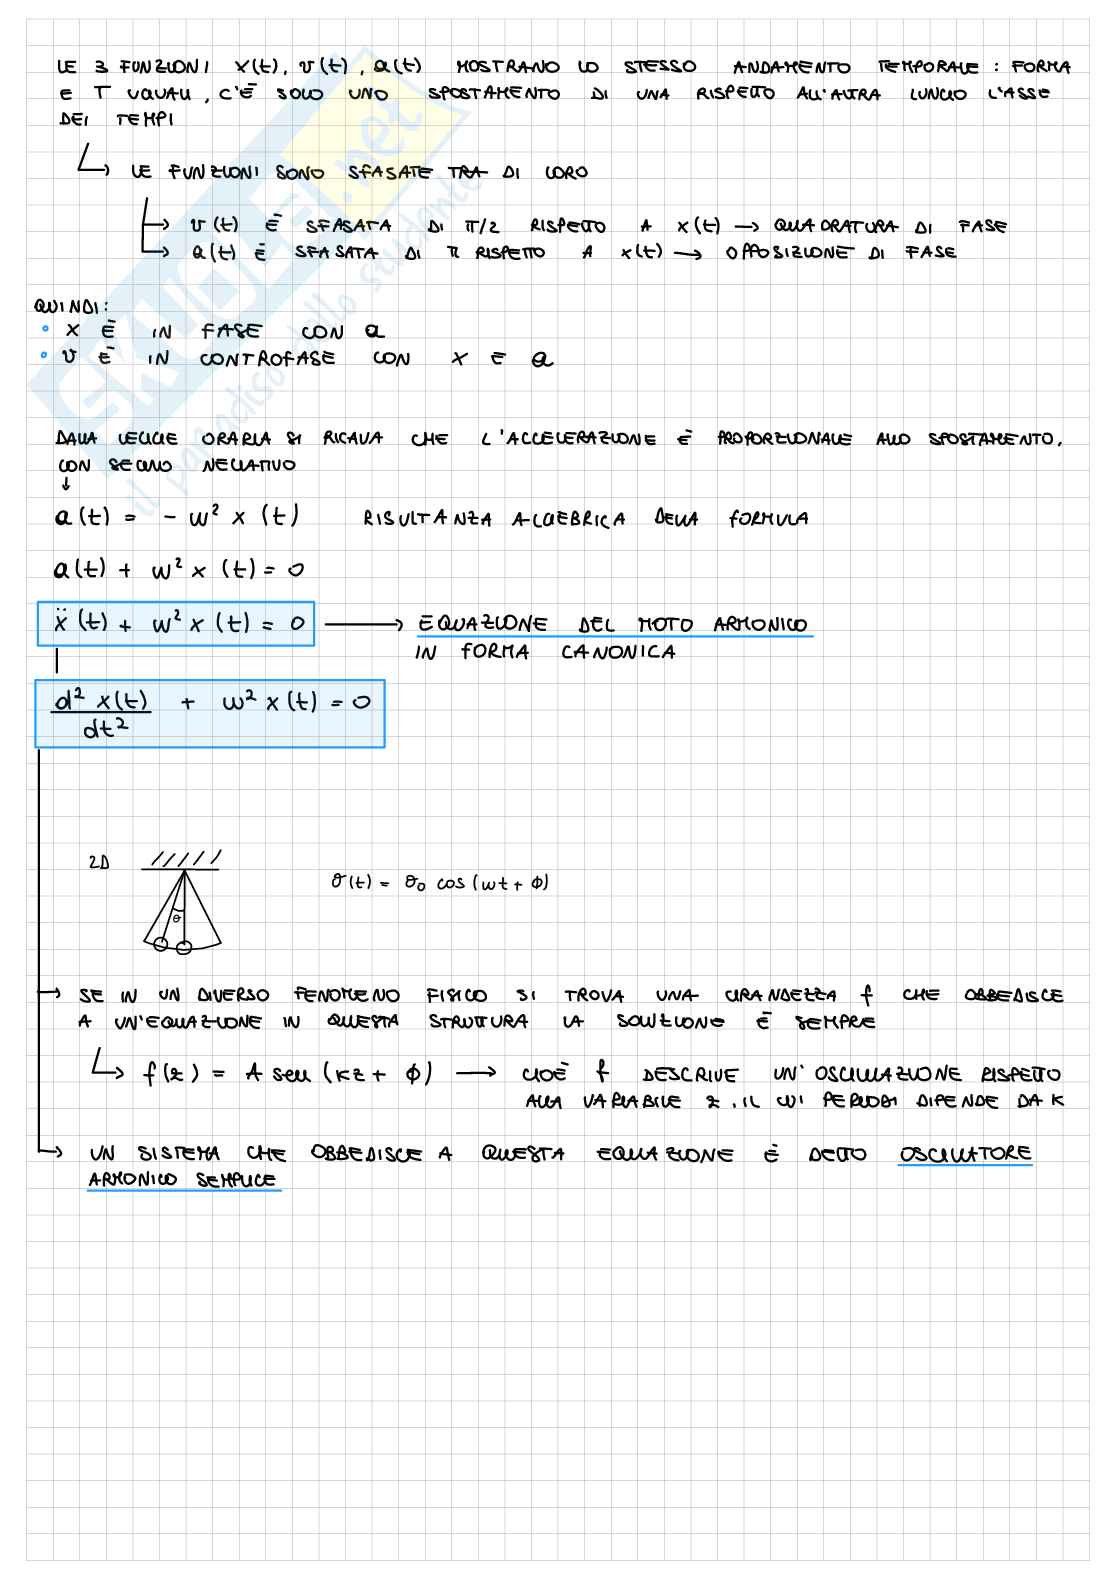 LE 3 FUNZIONI x(t), v(t), a(t) MOSTRANO LO STESSO ANDAMENTO TEMPORALE : FORMA
E T UGUALI, C'È SOLO UNO SPOSTAMENTO DI UNA RISPETTO ALL'ALTRA LUNGO L'ASSE
DEI TEMPI
LE FUNZIONI SONO SFASATE TRA DI LORO
v(t) È SFASATA DI π/2 RISPETTO A x(t) → QUADRATURA DI FASE
a(t) È SFASATA DI π RISPETTO A x(t) → OPPOSIZIONE DI FASE
QUINDI:
• x È IN FASE CON a
• v È IN CONTROFASE CON x E a
DALLA LEGGE ORARIA SI RICAVA CHE L'ACCELERAZIONE È PROPORZIONALE ALLO SPOSTAMENTO,
CON SEGNO NEGATIVO
↓
a(t) = - w² x (t) RISULTANZA ALGEBRICA DELLA FORMULA
a(t) + w² x (t) = 0
ẍ (t) + w² x (t) = 0 → EQUAZIONE DEL MOTO ARMONICO
IN FORMA CANONICA
d² x(t) / dt² + w² x (t) = 0
2D
θ(t) = θ₀ cos (wt + ϕ)
θ
→ SE IN UN DIVERSO FENOMENO FISICO SI TROVA UNA GRANDEZZA f CHE OBBEDISCE
A UN'EQUAZIONE IN QUESTA STRUTTURA LA SOLUZIONE È SEMPRE
f(z) = A sen (kz + ϕ) → CIOÈ f DESCRIVE UN'OSCILLAZIONE RISPETTO
ALLA VARIABILE z, IL CUI PERIODI DIPENDE DA K
→ UN SISTEMA CHE OBBEDISCE A QUESTA EQUAZIONE È DETTO OSCILLATORE
ARMONICO SEMPLICE
SKUOLA.net
il paradiso dello studente